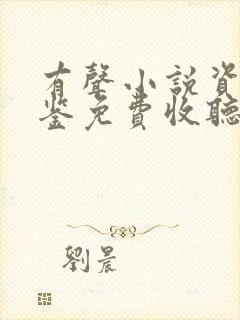 有聲小說資
鉴免費收聽
劉晨